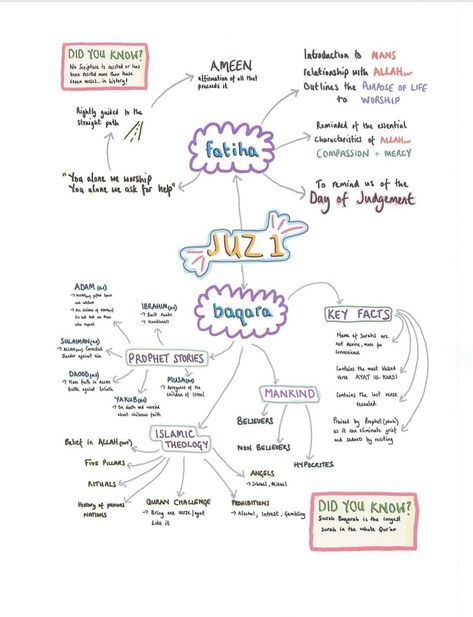 DID YOU KNOW?
No Scripture is recited or has
been recited more than these
seven verses... in history!
AMEEN
affirmation of all that
preceeds it
Introduction to MANS
relationship with ALLAH
Outlines the PURPOSE OF LIFE
to WORSHIP
Rightly guided to the
straight path
fatiha
Reminded of the essential
Characteristics of ALLAH
COMPASSION + MERCY
"You alone we worship
You alone we ask for help"
To remind us of the
Day of Judgement
JUZ 1
baqara
ADAM (as)
IBRAHIM (as)
→ Built Kaaba
→ Humbleness
SULAIMAN (as)
→ ALLAH corrected
slander against him
PROPHET STORIES
DAOOD (as)
→ Had faith in ALLAH
Battle against Goliath
MUSA (as)
→ Arrogance of the
children of Israel
YAKUB (as)
→ On death bed worried
about childrens faith
KEY FACTS
Name of Surahs are
not divine, more for
convenience
Contains the most blessed
verse AYAT UL KURSI
Contains the last verse
revealed
Praised by Prophet (pbuh)
as it can eliminate grief
and
by reciting
MANKIND
BELIEVERS
NON BELIEVERS
HYPOCRITES
ISLAMIC
THEOLOGY
Belief in ALLAH
FIVE PILLARS
RITUALS
History of previous
NATIONS
QURAN CHALLENGE
→ Bring one verse/ayat
like it
PROHIBITIONS
→ Alcohol, Interest, Gambling
ANGELS
→ Jibreel, Mikael
DID YOU KNOW?
Surah Baqarah is the longest
Surah in the whole Qur'an